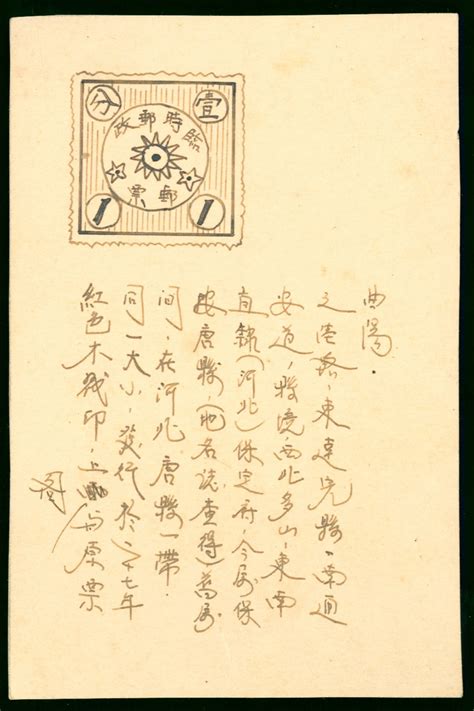 壹
分
臨時郵政
郵票
1
1
紅色木戳印,上与原票
圖
同一大小,發行於二十七年
间,在河北唐縣一帶.
按唐縣,(地名誌查得)舊屬
直隸(河北)保定府,今屬保
安道,縣境西北多山,東南
之陸路,東達完縣,南通
曲陽.